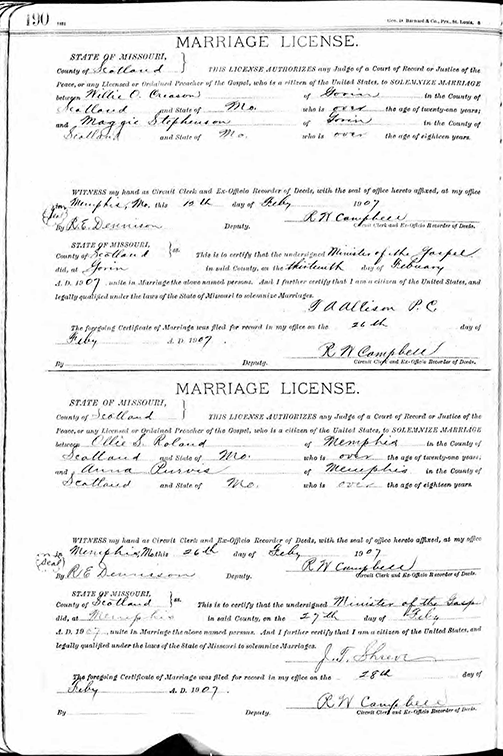 190
Geo. D. Barnard & Co., Prs. St. Louis.
MARRIAGE LICENSE.
STATE OF MISSOURI,
County of Scotland THIS LICENSE AUTHORIZES any Judge of a Court of Record or Justice of the
Peace, or any Licensed or Ordained Preacher of the Gospel, who is a citizen of the United States, to SOLEMNIZE MARRIAGE
between Willie O. Creason of Gorin in the County of
Scotland and State of Mo. who is over the age of twenty-one years;
and Maggie Stephenson of Gorin in the County of
Scotland and State of Mo. who is over the age of eighteen years.
WITNESS my hand as Circuit Clerk and Ex-Officio Recorder of Deeds, with the seal of office hereto affixed, at my office
Memphis, Mo. this 12th day of Feby 1907
R W Campbell
By R. E. Dennison Deputy. Circuit Clerk and Ex-Officio Recorder of Deeds.
STATE OF MISSOURI,
County of Scotland ss. This is to certify that the undersigned Minister of the Gospel
did, at Gorin in said County, on the thirteenth day of February
A. D. 1907, unite in Marriage the above named persons. And I further certify that I am a citizen of the United States, and
legally qualified under the laws of the State of Missouri to solemnize Marriages.
Allison P. C.
The foregoing Certificate of Marriage was filed for record in my office on the 26th day of
Feby A. D. 1907.
R W Campbell
By Deputy. Circuit Clerk and Ex-Officio Recorder of Deeds.
MARRIAGE LICENSE.
STATE OF MISSOURI,
County of Scotland THIS LICENSE AUTHORIZES any Judge of a Court of Record or Justice of the
Peace, or any Licensed or Ordained Preacher of the Gospel, who is a citizen of the United States, to SOLEMNIZE MARRIAGE
between Ollie S. Roland of Memphis in the County of
Scotland and State of Mo. who is over the age of twenty-one years;
and Anna Purvis of Memphis in the County of
Scotland and State of Mo. who is over the age of eighteen years.
WITNESS my hand as Circuit Clerk and Ex-Officio Recorder of Deeds, with the seal of office hereto affixed, at my office
Memphis, Mo this 26th day of Feby 1907
Seal R. W. Campbell
By R. E. Dennison Deputy. Circuit Clerk and Ex-Officio Recorder of Deeds.
STATE OF MISSOURI,
County of Scotland ss. This is to certify that the undersigned Minister of the Gospe
did, at Memphis in said County, on the 27th day of Feby
A. D. 1907, unite in Marriage the above named persons. And I further certify that I am a citizen of the United States, and
legally qualified under the laws of the State of Missouri to solemnize Marriages.
J. T. Shreve
The foregoing Certificate of Marriage was filed for record in my office on the 28th day of
Feby A. D. 1907.
R W Campbell
By Deputy. Circuit Clerk and Ex-Officio Recorder of Deeds.